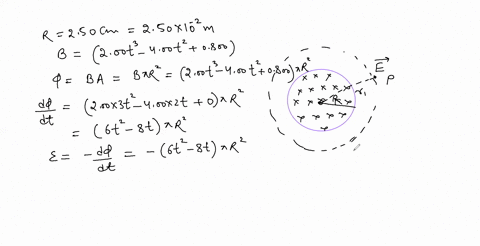 R = 2.50 cm = 2.50×10⁻² m
B = (2.00t³ - 4.00t² + 0.800)
φ = BA = BπR² = (2.00t³ - 4.00t² + 0.800)πR²
dφ/dt = (2.00×3t² - 4.00×2t + 0)πR²
= (6t² - 8t)πR²
ε = -dφ/dt = -(6t² - 8t)πR²
E
P
r₁
R